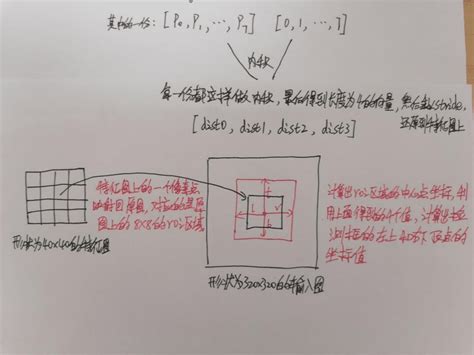 其中的一份: [P0, P1, ⋯, P7] [0, 1, ⋯, 7]
内积
每一份都这样做内积, 最后得到长度为4的向量, 然后乘以stride,
还原到特征图上
[dist0, dist1, dist2, dist3]
特征图上的一个像素点
映射回原图, 对应的是原
图上的8x8的roi区域
t
l
r
b
计算出roi区域的中心点坐标, 利
用上面得到的4个值, 计算出检
测框的左上和右下顶点的
坐标值
形状为40x40的特征图
形状为320x320的输入图